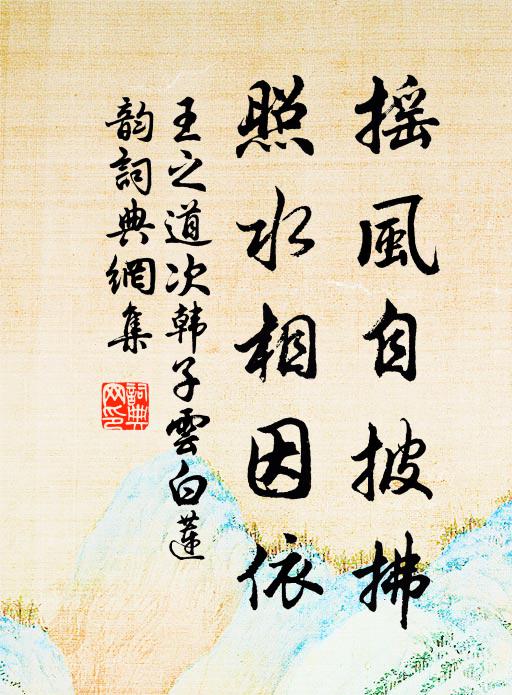 摇風自披拂
照水相因依
王之道次韩子雲白蓮
韵詞典網集
詞典網印